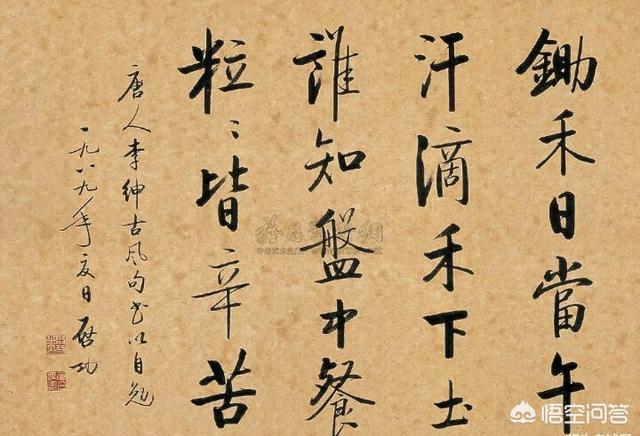 鋤禾日當午
汗滴禾下土
誰知盤中餐
粒〻皆辛苦
唐人李紳古風句書以自勉
一九八九年夏日啟功
悟空问答